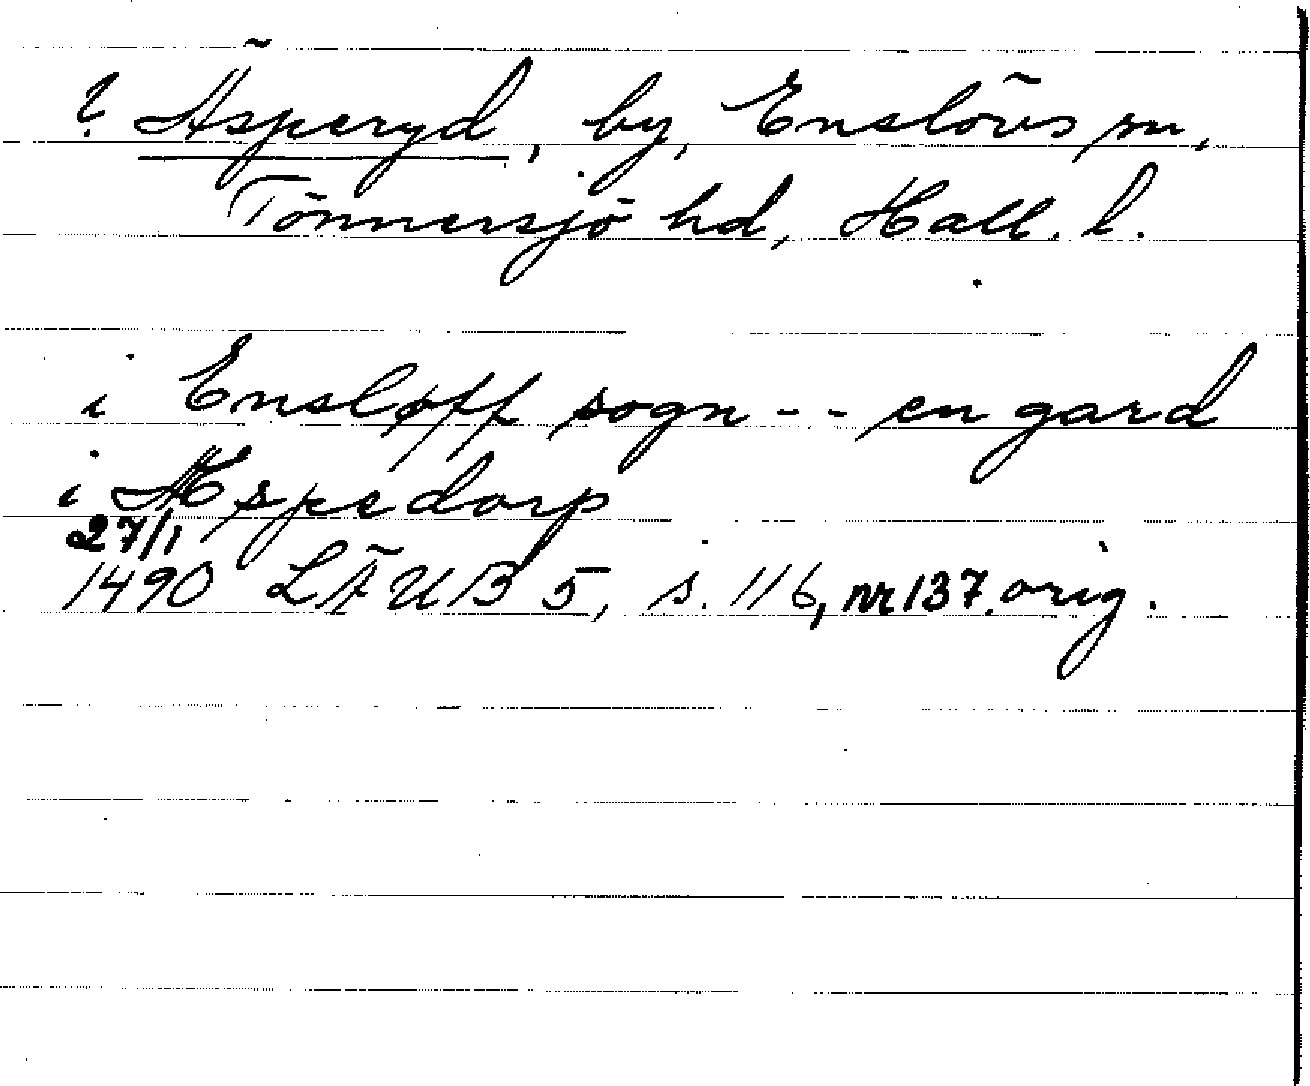 ? Äsperyd, by, Enslövs sn,
Tönnersjö hd, Hall. l.
i Ensløff sogn -- en gard
i Æspedorp
27/1
1490 LÄUB 5, s. 116, nr 137. orig.